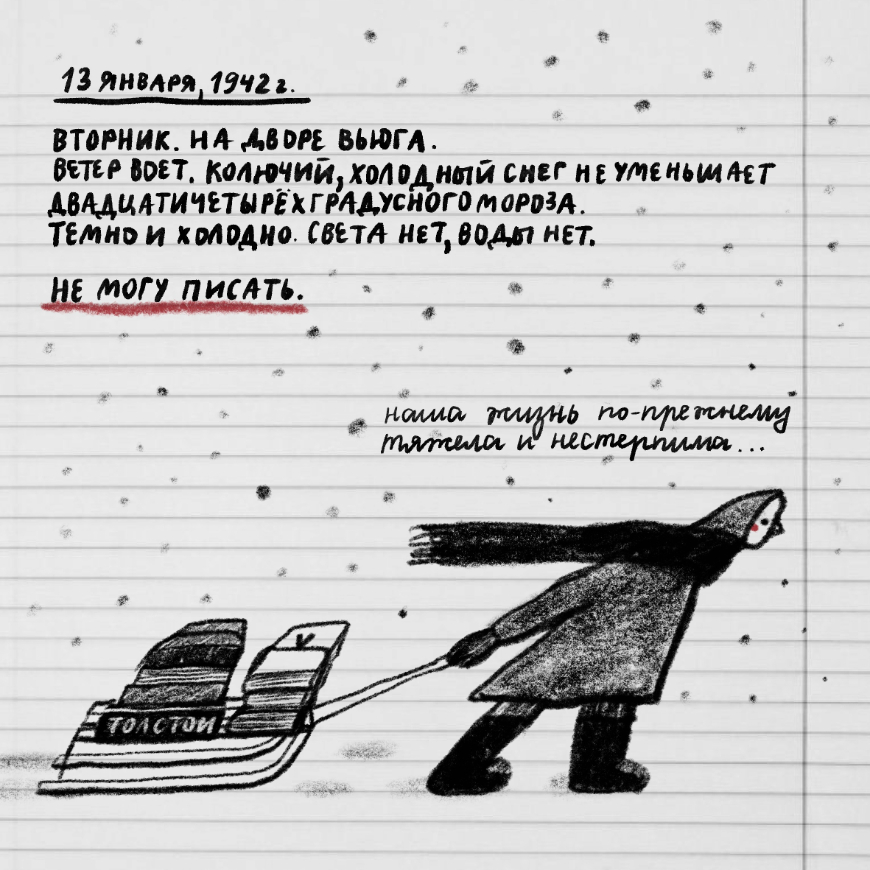 13 ЯНВАРЯ, 1942 г.
ВТОРНИК. НА ДВОРЕ ВЬЮГА.
ВЕТЕР ВОЕТ. КОЛЮЧИЙ, ХОЛОДНЫЙ СНЕГ НЕ УМЕНЬШАЕТ
ДВАДЦАТИЧЕТЫРЁХГРАДУСНОГО МОРОЗА.
ТЕМНО И ХОЛОДНО. СВЕТА НЕТ, ВОДЫ НЕТ.
НЕ МОГУ ПИСАТЬ.
наша жизнь по-прежнему
тяжела и нестерпима...
V
ТОЛСТОЙ